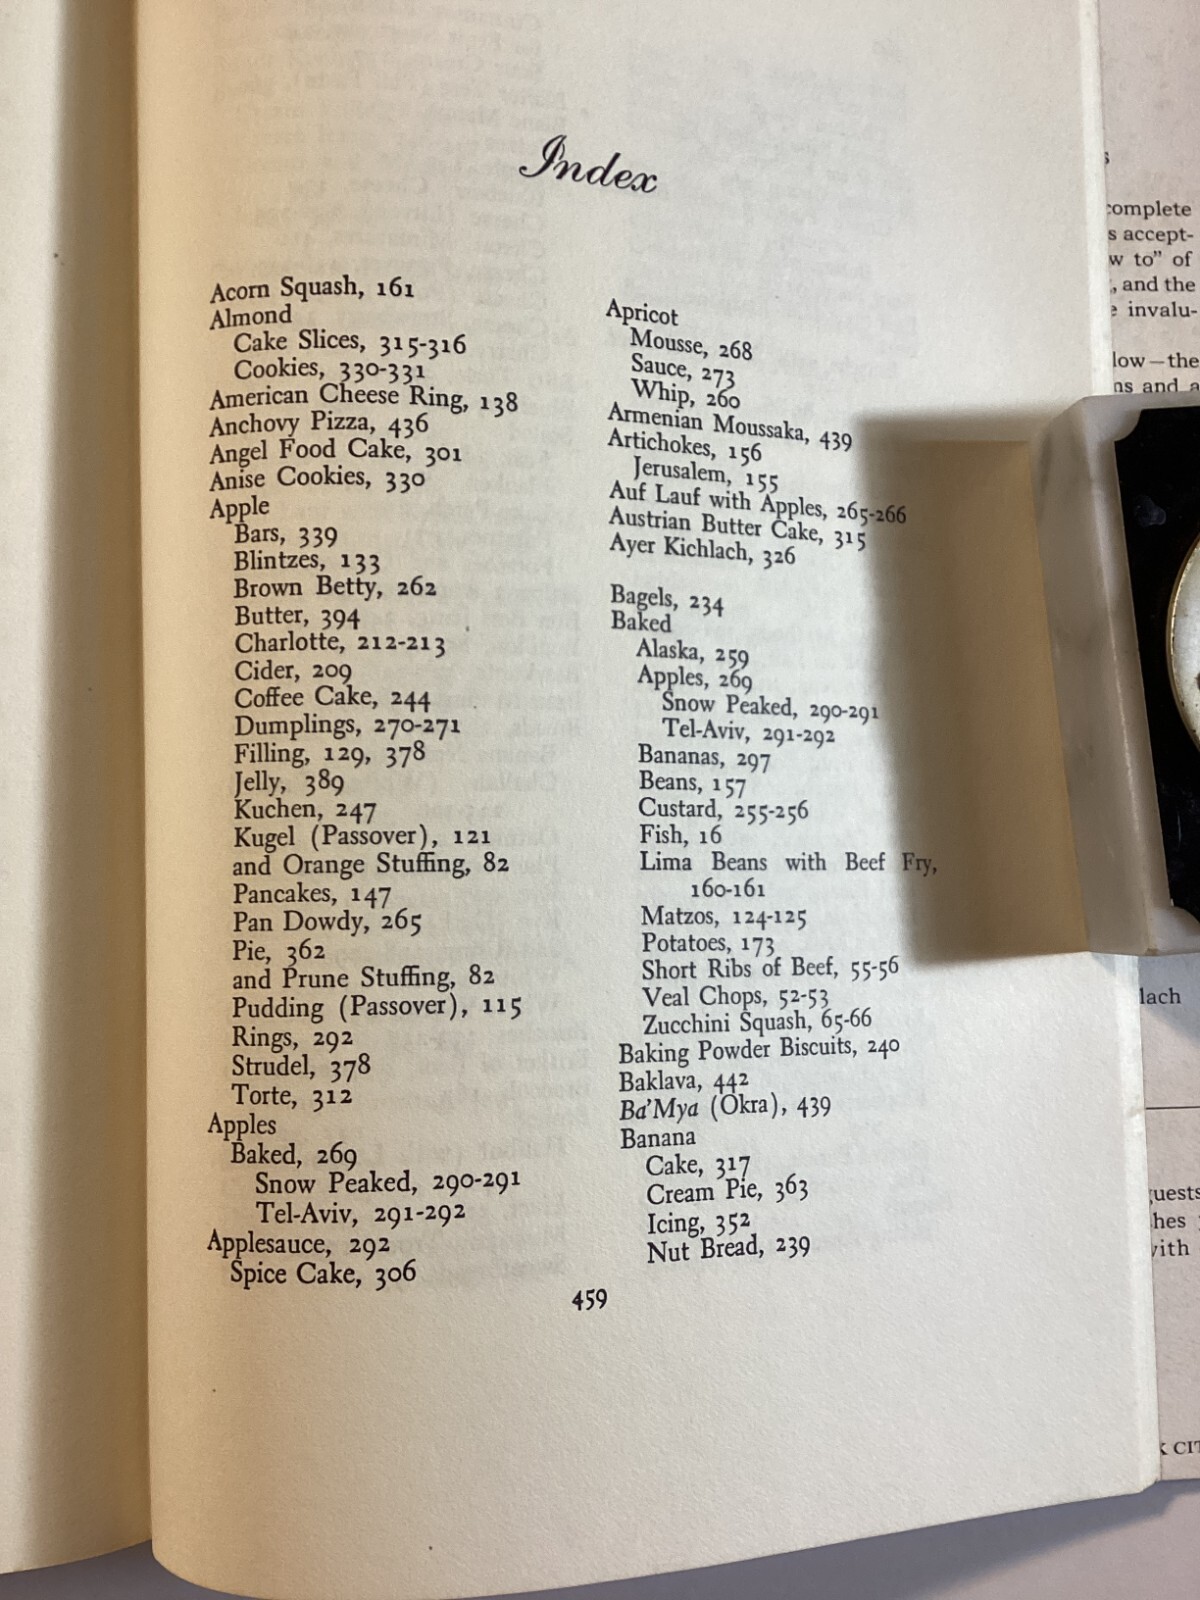 Index
Acorn Squash, 161
Almond
Cake Slices, 315-316
Cookies, 330-331
American Cheese Ring, 138
Anchovy Pizza, 436
Angel Food Cake, 301
Anise Cookies, 330
Apple
Bars, 339
Blintzes, 133
Brown Betty, 262
Butter, 394
Charlotte, 212-213
Cider, 209
Coffee Cake, 244
Dumplings, 270-271
Filling, 129, 378
Jelly, 389
Kuchen, 247
Kugel (Passover), 121
and Orange Stuffing, 82
Pancakes, 147
Pan Dowdy, 265
Pie, 362
and Prune Stuffing, 82
Pudding (Passover), 115
Rings, 292
Strudel, 378
Torte, 312
Apples
Baked, 269
Snow Peaked, 290-291
Tel-Aviv, 291-292
Applesauce, 292
Spice Cake, 306
Apricot
Mousse, 268
Sauce, 273
Whip, 260
Armenian Moussaka, 439
Artichokes, 156
Jerusalem, 155
Auf Lauf with Apples, 265-266
Austrian Butter Cake, 315
Ayer Kichlach, 326
Bagels, 234
Baked
Alaska, 259
Apples, 269
Snow Peaked, 290-291
Tel-Aviv, 291-292
Bananas, 297
Beans, 157
Custard, 255-256
Fish, 16
Lima Beans with Beef Fry,
160-161
Matzos, 124-125
Potatoes, 173
Short Ribs of Beef, 55-56
Veal Chops, 52-53
Zucchini Squash, 65-66
Baking Powder Biscuits, 240
Baklava, 442
Ba'Mya (Okra), 439
Banana
Cake, 317
Cream Pie, 363
Icing, 352
Nut Bread, 239
459
complete
s accept-
w to" of
, and the
e invalu-
low—the
ns and a
lach
uests
hes
with
K CIT